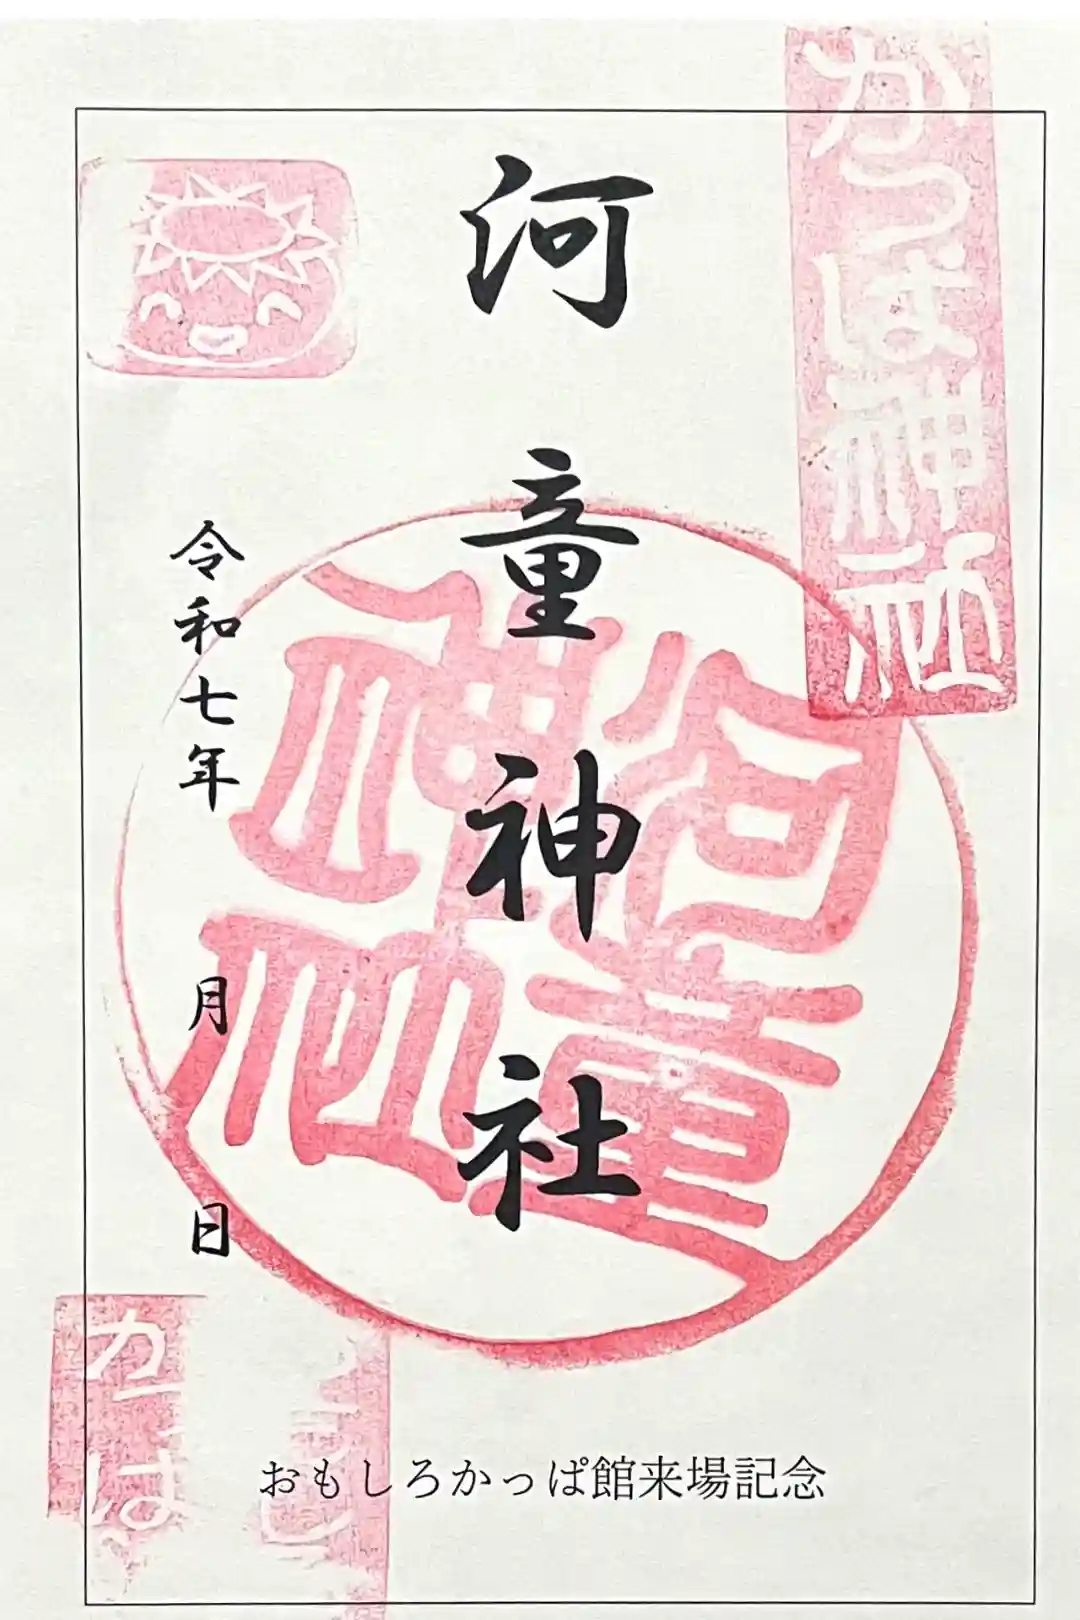 かっぱ神社
河童神社
河童神社
令和七年 月 日
おもしろかっぱ館来場記念